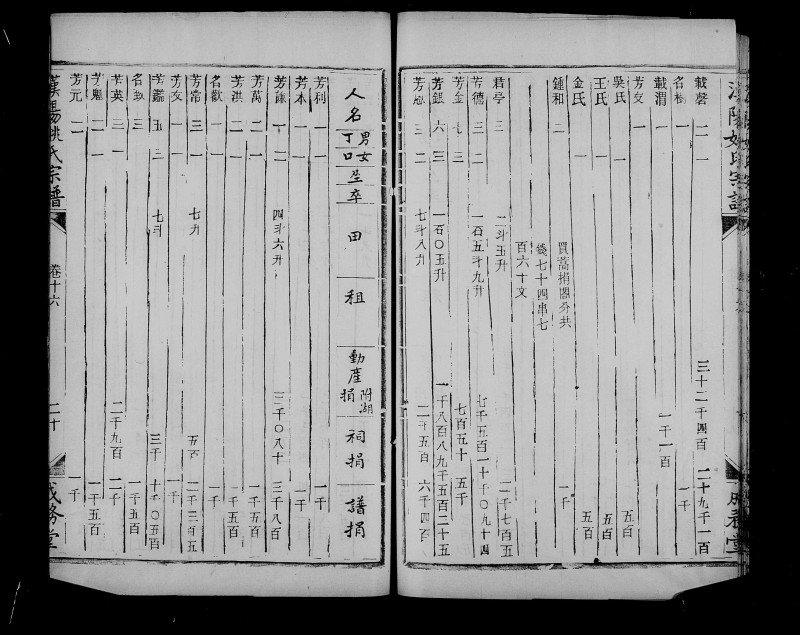 載磬 一 一 三十二千四百 二十九千一百
名樹 一 一千
載渭 一 一 一千一百
芳友 一 一
吳氏 一 五百
王氏 一 一 五百
金氏 一 五百
鍾和 二 一千
買蒿捐閣分共
錢七十四串七
百六十文
君亭 三 二斗五升 二千七百五
芳德 三 二 一石五斗九升 七千五百一十 千〇九十四
芳金 七 三 七百五十 五千
芳銀 六 三 一石〇五升 一千八百八 九千五百二十五
三 二 七斗八升 二千五百 六千四百
人名 男丁 女口 生卒 田 租 動產捐 附湖 祠捐 譜捐
芳利 一 一 一千
芳本 一 一 一千
十 二 四斗六升 三千〇八十 三千八百
芳萬 二 一 一千五百
芳洪 二 一 一千五百
名歡 一 一 一千
芳常 三 一 七升 五百 二千三百五
芳友 一 一 一千
芳鑑 五 三 七斗 三千 十千〇五百
三 一千五百
芳英 三 一 二千九百 二千
芳魁 一 一 一千五百
芳元 二 一千
漢陽姚氏宗譜 卷十六 二十 成務堂